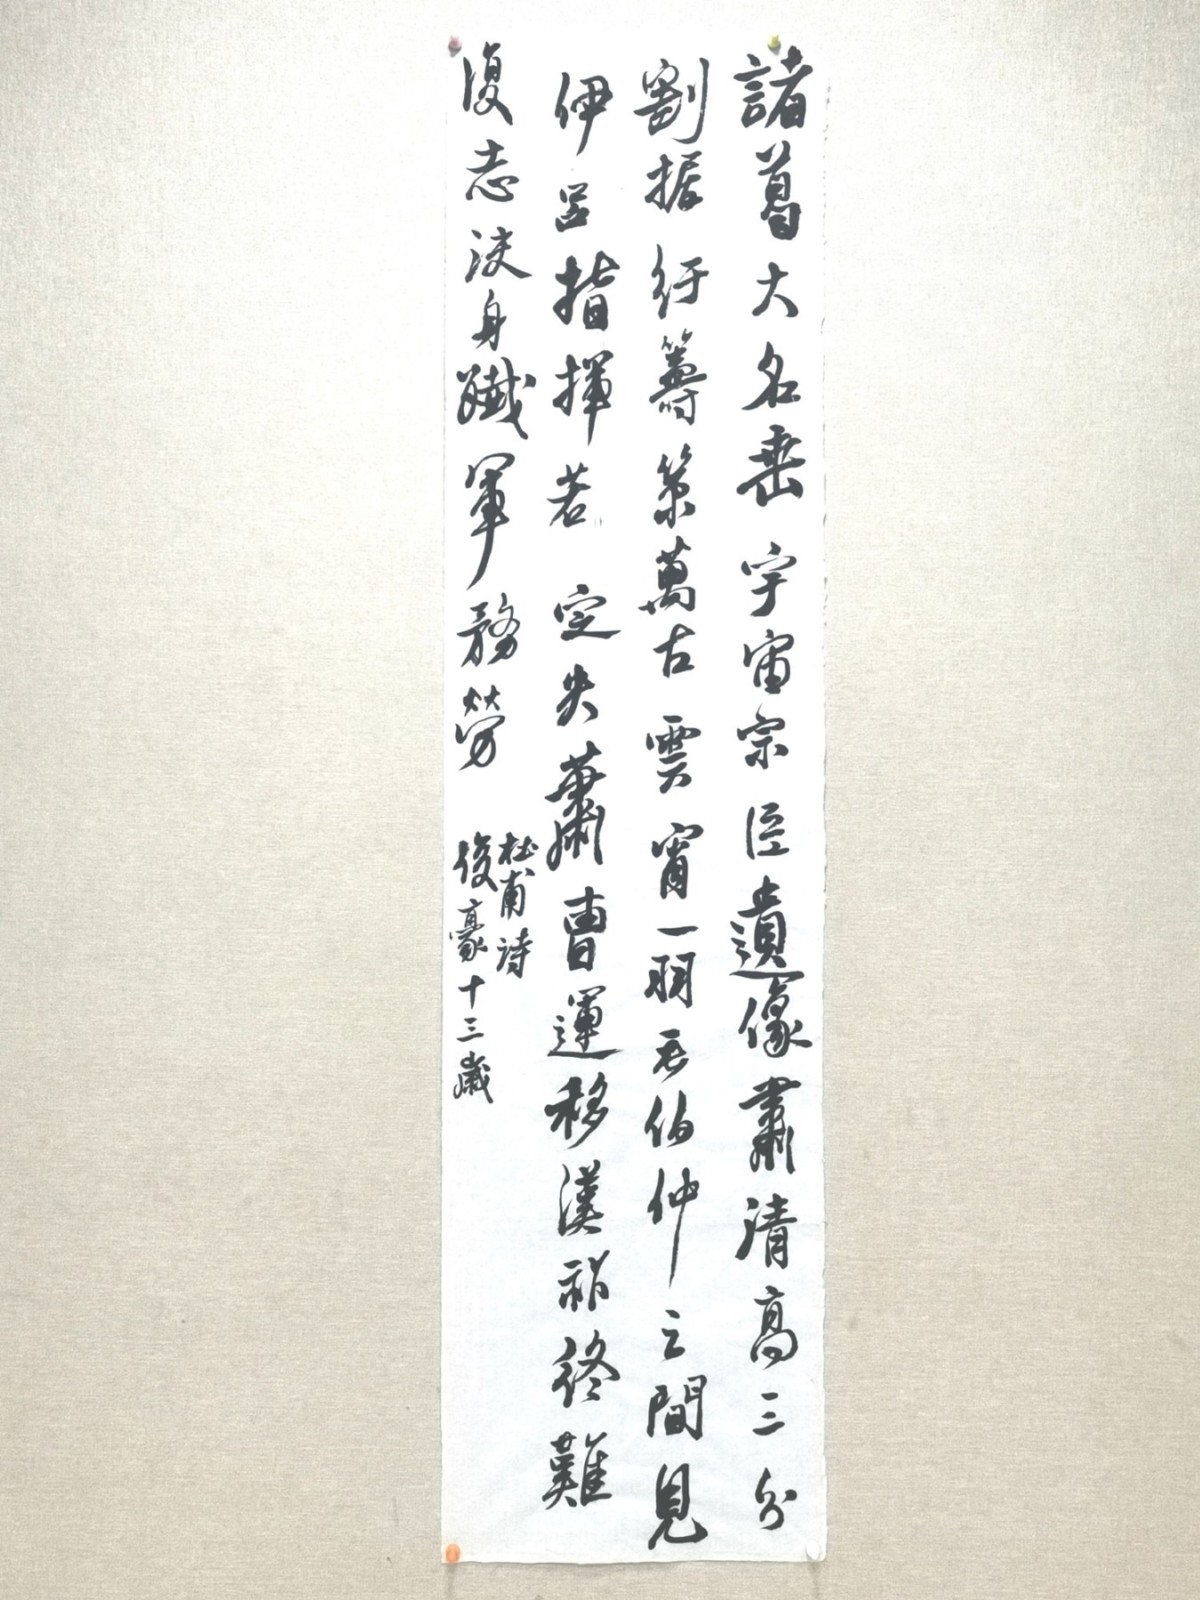 諸葛大名垂宇宙宗臣遺像肅清高三分
割据紆籌策萬古雲霄一羽毛伯仲之間見
伊呂指揮若定失蕭曹運移漢祚終難
復志決身殲軍務勞
杜甫詩
俊豪十三歲